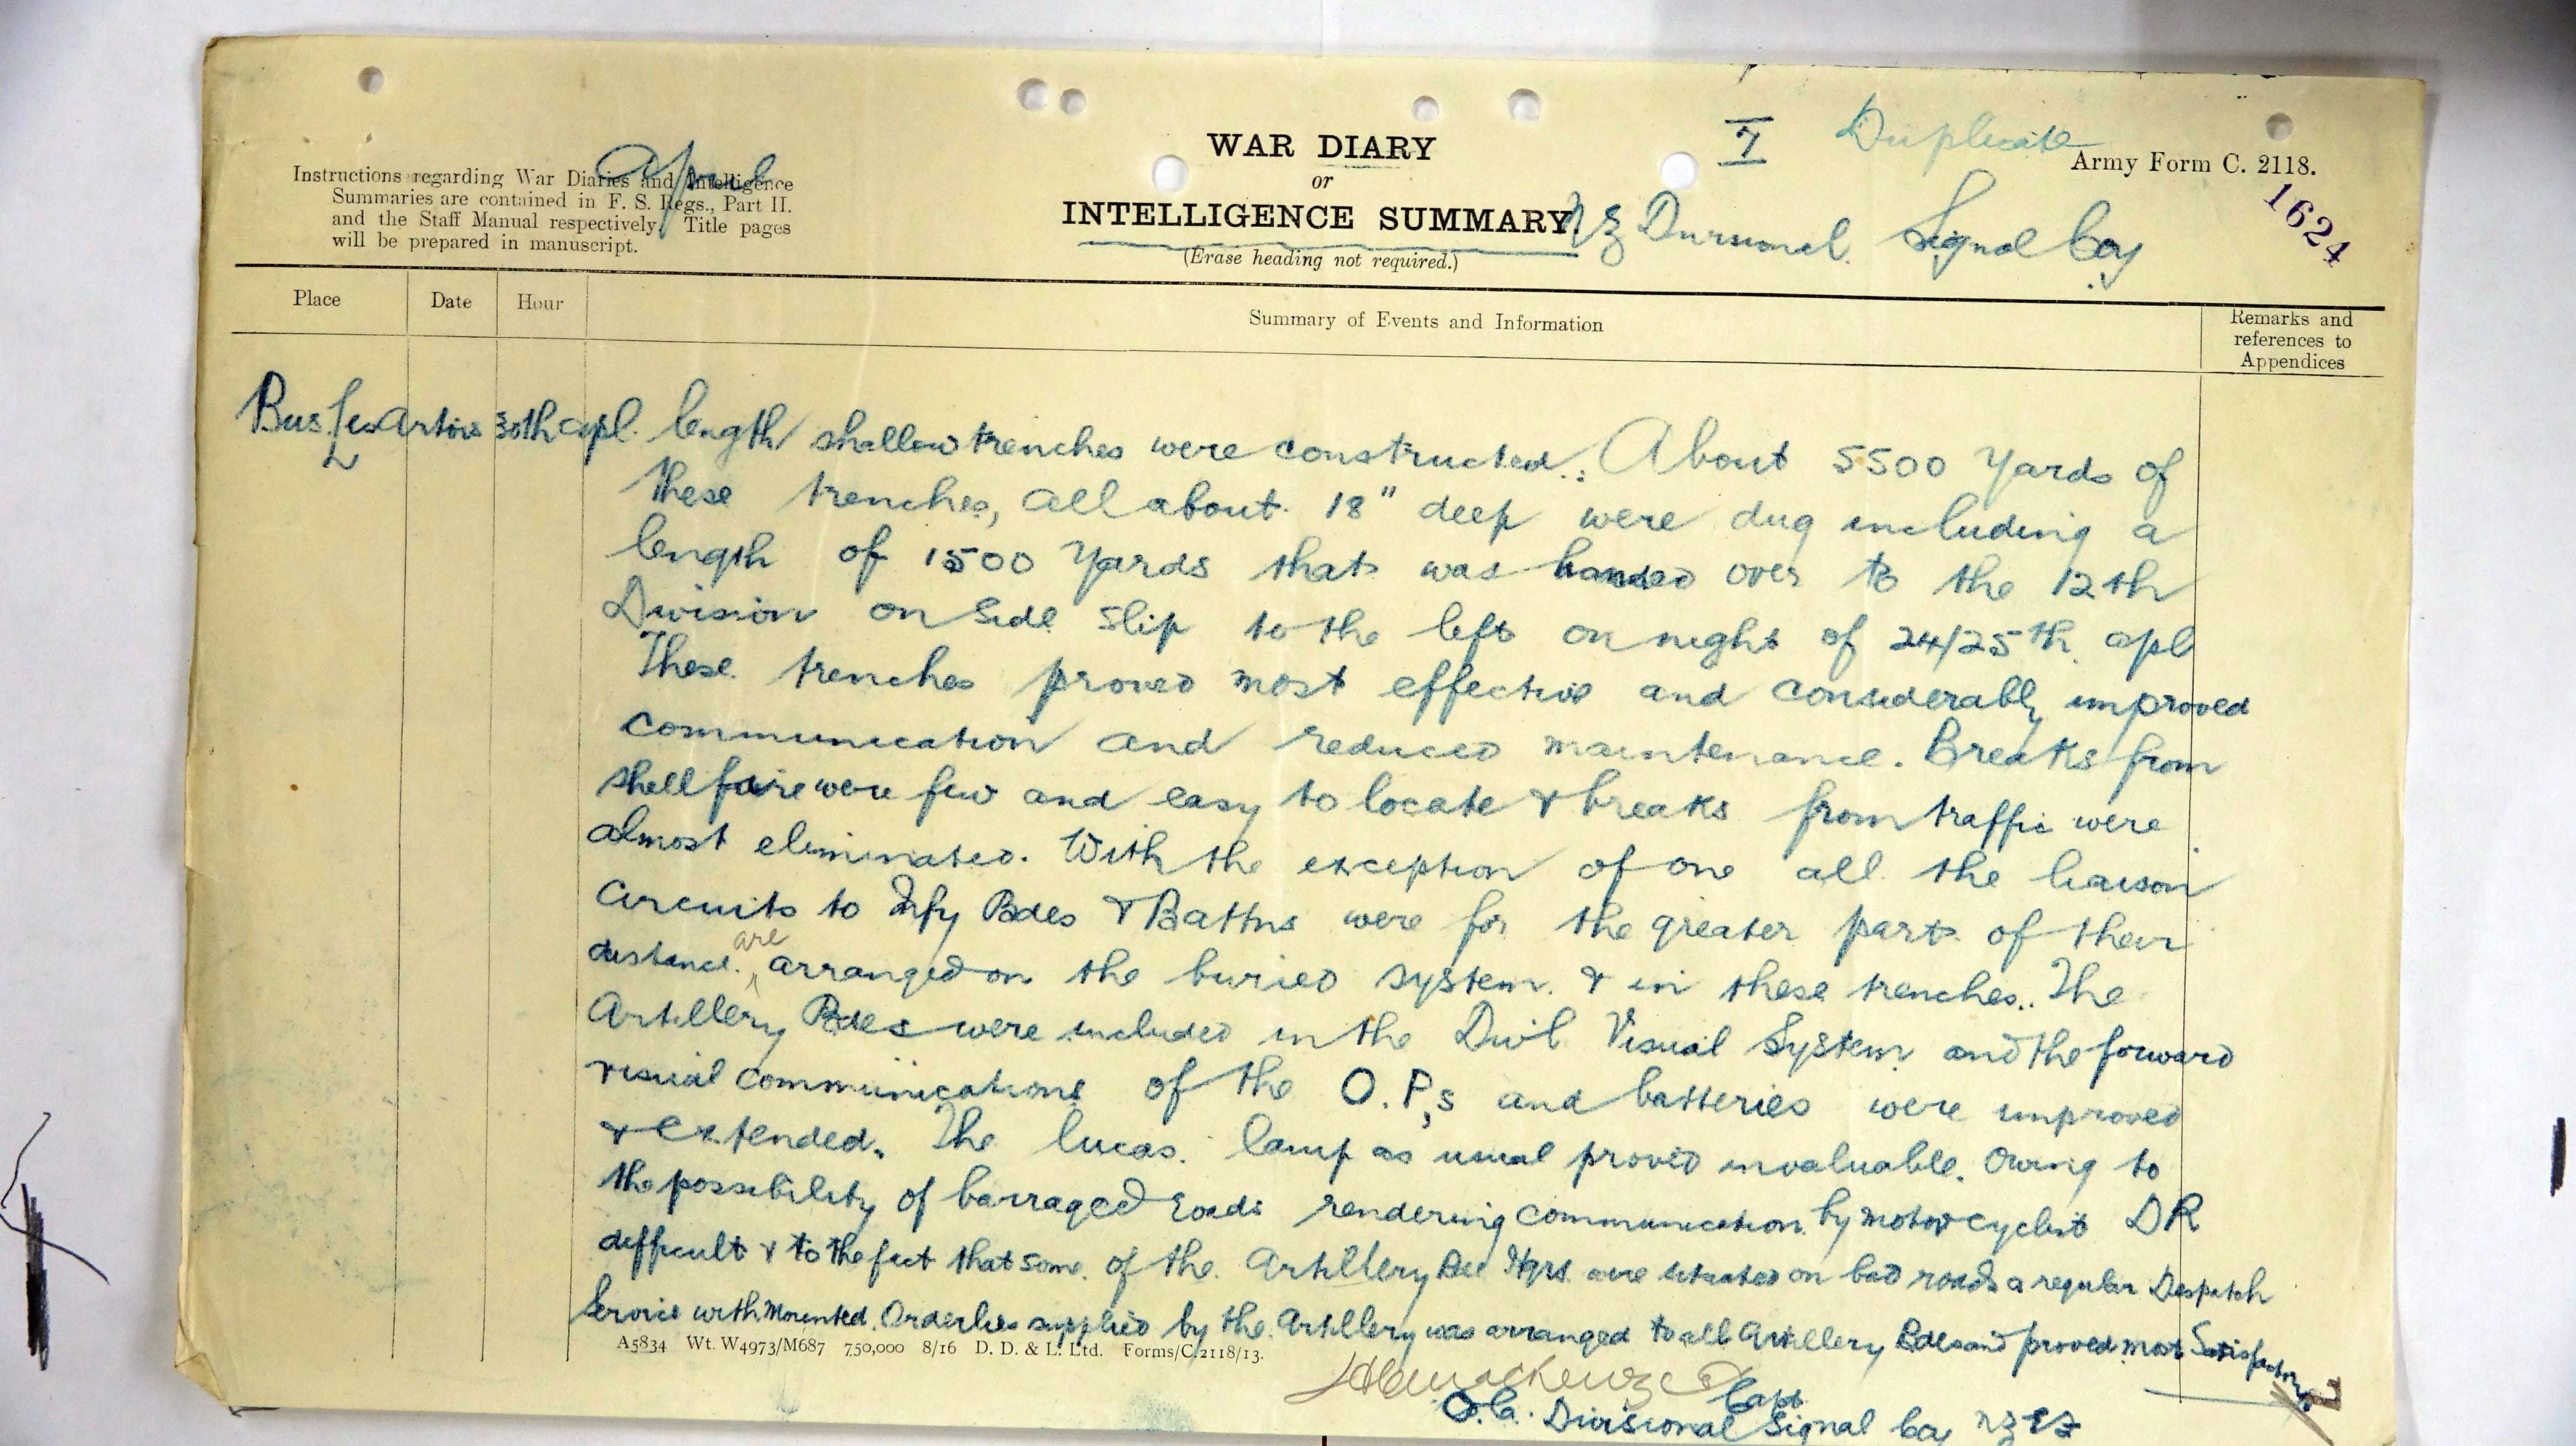 April
Instructions regarding War Diaries and Intelligence
Summaries are contained in F. S. Regs., Part II.
and the Staff Manual respectively. Title pages
will be prepared in manuscript.
WAR DIARY
or
INTELLIGENCE SUMMARY.
(Erase heading not required.)
7
Duplicate
Army Form C. 2118.
NZ Divisional Signal Coy
1624
Place
Date
Hour
Summary of Events and Information
Remarks and
references to
Appendices
Bus les Artois 30th apl. length shallow trenches were constructed. About 5500 Yards of
these trenches, all about 18" deep were dug including a
length of 1500 Yards that was handed over to the 12th
Division on side slip to the left on night of 24/25th apl
These trenches proved most effective and considerably improved
communication and reduced maintenance. Breaks from
shell fire were few and easy to locate & breaks from traffic were
almost eliminated. With the exception of one all the liaison
circuits to Infy Bdes & Battns were for the greater part of their
distance are arranged on the buried system & in these trenches. The
Artillery Bdes were included in the Divl Visual System and the forward
visual communications of the O.P,s and batteries were improved
& extended. The lucas lamp as usual proved invaluable. Owing to
the possibility of barraged roads rendering communication by motor cyclist DR
difficult & to the fact that some of the Artillery Bde Hqrs are situated on bad roads a regular Despatch
Service with Mounted Orderlies supplied by the Artillery was arranged to all Artillery Bdes and proved most Satisfactory
A5834 Wt. W4973/M687 750,000 8/16 D. D. & L. Ltd. Forms/C.2118/13.
Capt
O.C. Divisional Signal Coy NZEF